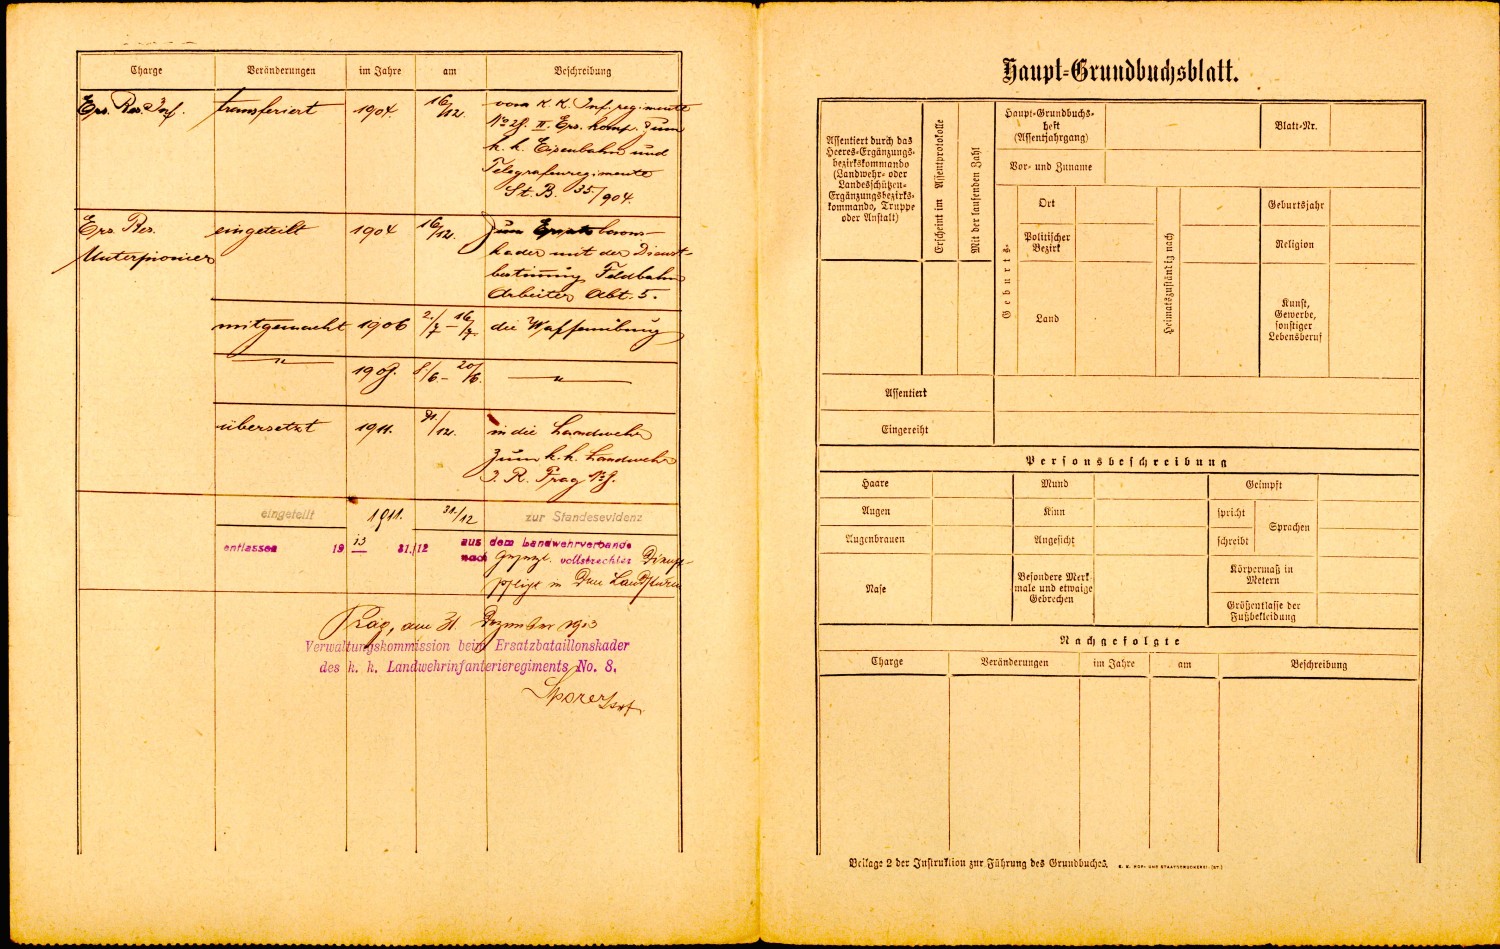 Charge Veränderungen im Jahre am Beschreibung
Ers. Res. Inf. transferiert 1904. 16/12. vom K. K. Inf. regimente
No 28. II. Ers. komp. zum
k. k. Eisenbahn und
Telegrafenregimente
St. B. 35/904.
Ers. Res. eingeteilt 1904 16/12. zum Ersatz
Unterpionier kader mit der Dienst-
bestimmung Feldbahn
Arbeiter Abt. 5.
mitgemacht 1906 2./7 – 16/7. die Waffenübung
—〃— 1908. 8/6. – 20/6. —〃—
übersetzt 1911. 31/12. in die Landwehr
zum k. k. Landwehr
I. R. Prag No 8.
eingeteilt 1911. 31./12 zur Standesevidenz
entlassen 19 13 31./12 aus dem Landwehrverbande
nach vollstreckter Dienst-
pflicht in den Landsturm
Prag, am 31. Dezember 1913
Verwaltungskommission beim Ersatzbataillonskader
des k. k. Landwehrinfanterieregiments No. 8.
Haupt-Grundbuchsblatt.
Assentiert durch das
Heeres-Ergänzungs-
bezirkskommando
(Landwehr- oder
Landesschützen-
Ergänzungsbezirks-
kommando, Truppe
oder Anstalt)
Erscheint im Assentprotokolle
Mit der laufenden Zahl
Haupt-Grundbuchs-
heft
(Assentjahrgang)
Blatt-Nr.
Vor- und Zuname
Geburts-
Ort
Politischer
Bezirk
Land
Heimatszuständig nach
Geburtsjahr
Religion
Kunst,
Gewerbe,
sonstiger
Lebensberuf
Assentiert
Eingereiht
Personsbeschreibung
Haare Mund Geimpft
Augen Kinn spricht Sprachen
Augenbrauen Angesicht schreibt
Nase
Besondere Merk-
male und etwaige
Gebrechen
Körpermaß in
Metern
Größenklasse der
Fußbekleidung
Nachgefolgte
Charge Veränderungen im Jahre am Beschreibung
Beilage 2 der Instruktion zur Führung des Grundbuches. K. K. HOF- UND STAATSDRUCKEREI. (ST.)